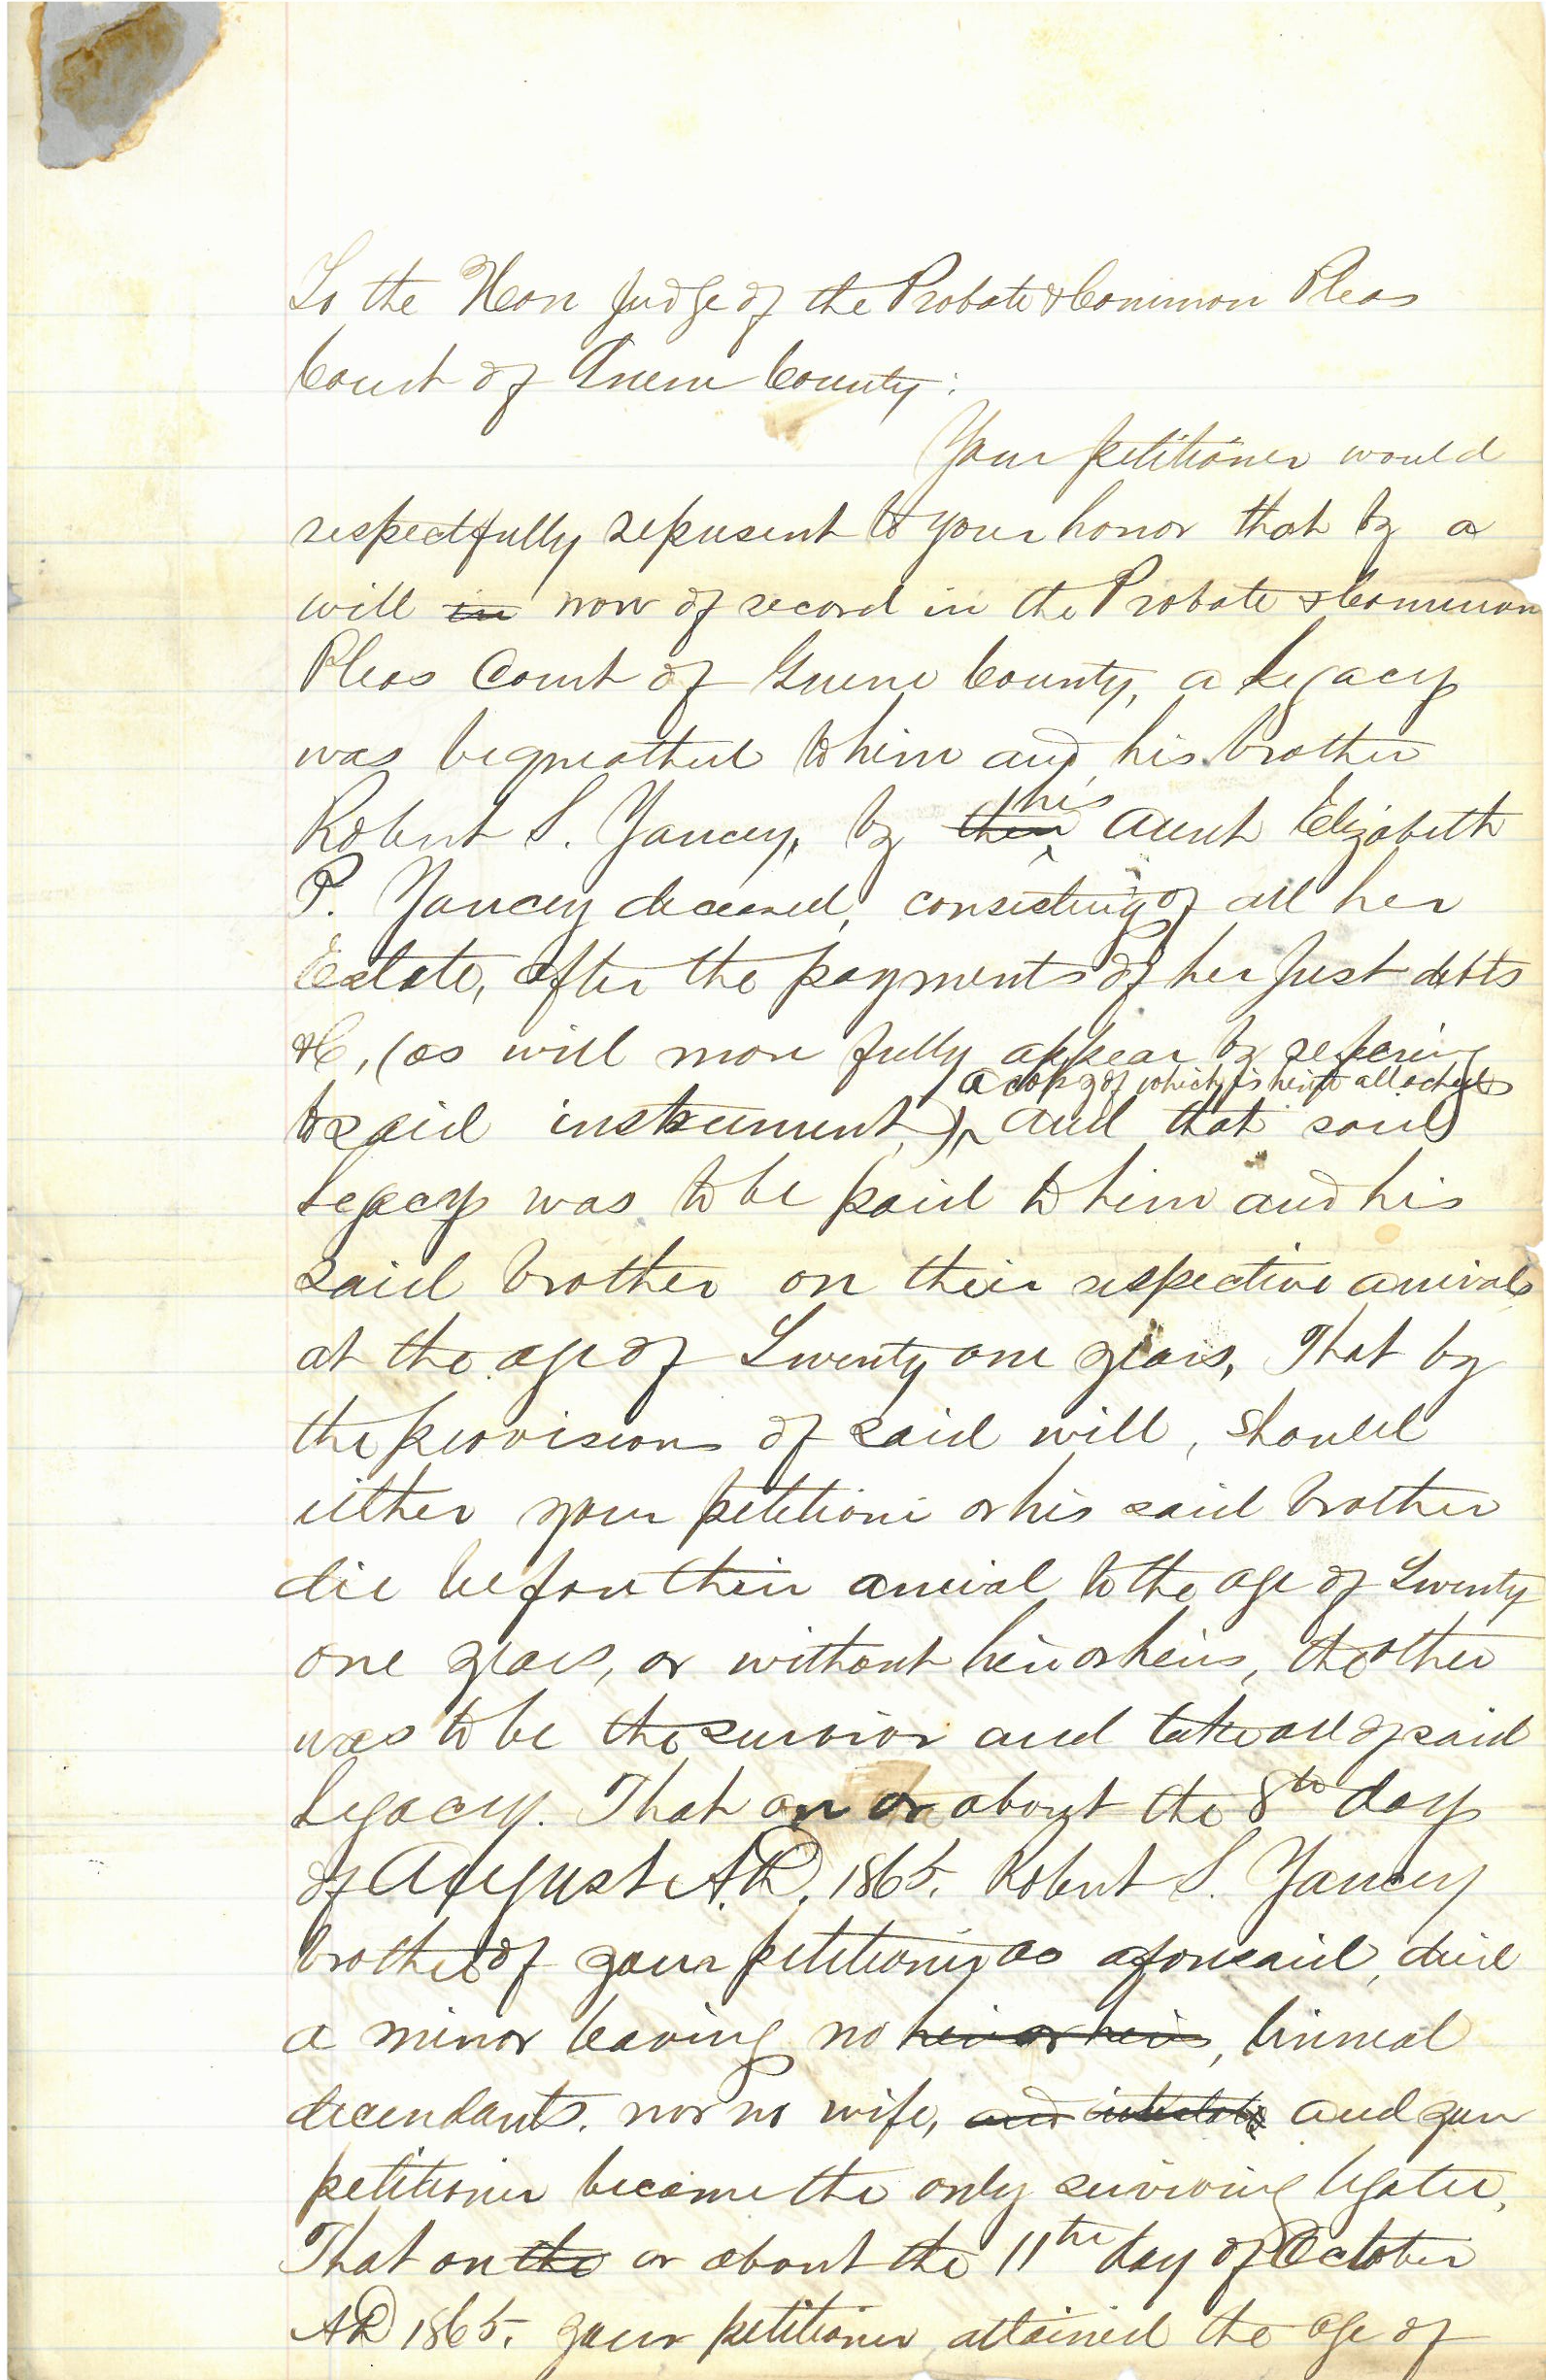 To the Hon Judge of the Probate & Common Pleas
Court of Green County:
Your petitioner would
respectfully represent to your honor that by a
will in now of record in the Probate & Common
Pleas Court of Greene County, a Legacy
was bequeathed to him and his brother
Robert S. Yancey, by their his aunt Elizabeth
P. Yancey deceased, consisting of all her
Estate, after the payments of her just debts
&C, (as will more fully appear by refering
a copy of which is herto attached
to said instrument,) and that said
Legacy was to be paid to him and his
said brother on their respective arivals
at the age of Twenty one years, That by
the provisions of said will, should
either your petitioner or his said brother
die before their arrival to the age of Twenty
one years, or without heir or heirs, the other
was to be the survivor and take all of said
Legacy. That on or about the 8th day
of August A.D. 1865. Robert S. Yancey
brother of your petitioner as aforesaid, died
a minor leaving no heir or heirs, linneal
decendants. nor no wife, and intestate and your
petitioner became the only surviving legatee,
That on the or about the 11th day of October
AD 1865. your petitioner attained the age of